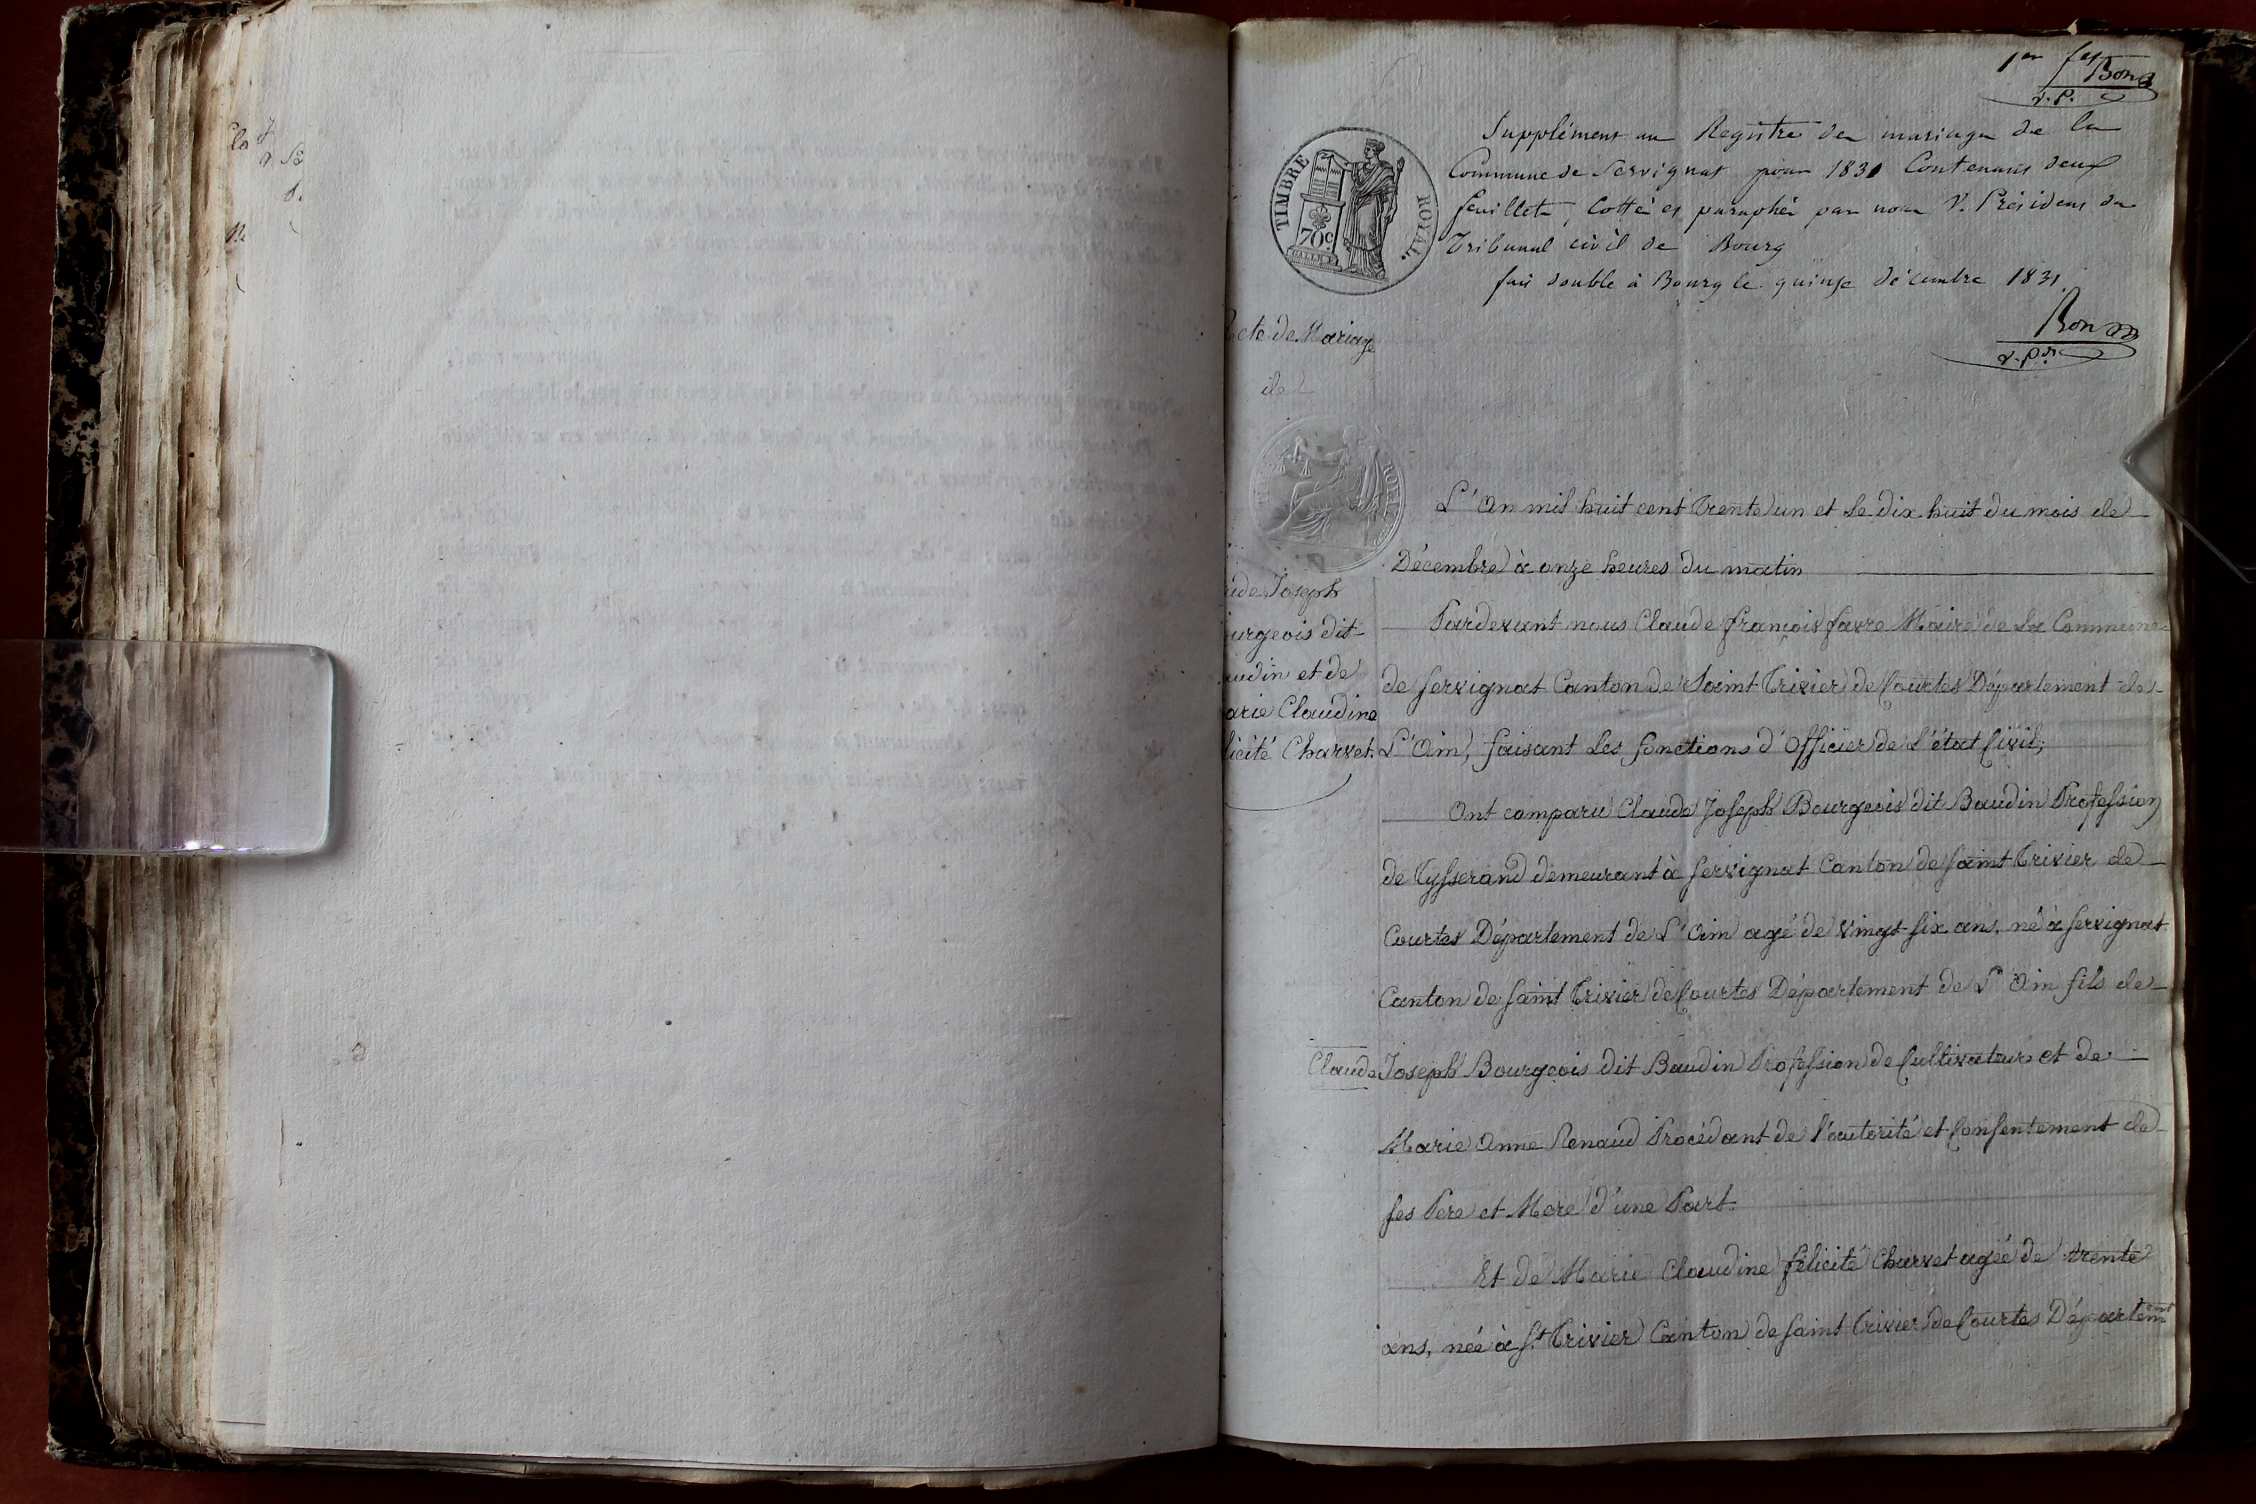 1er fet
Bon
v. P.
TIMBRE ROYAL.
70c.
Supplément au Registre des mariages de la
Commune de Servignat pour 1831 Contenant deux
feuillets, Cottés et paraphés par nous V. Président du
Tribunal civil de Bourg
fait double à Bourg le quinze décembre 1831.
Bon
v. Pdt
Acte de Mariage
de
ude Joseph
urgeois dit
udin et de
arie Claudine
licité Charvet.
L'An mil huit cent trente un et le dix huit du mois de
Décembre à onze heures du matin
Pardevant nous Claude françois favre Maire de La Commune
de Servignat Canton de Saint Trivier de Courtes Département de
L'Ain, faisant Les fonctions d'Officier de L'état Civil;
Ont comparu Claude Joseph Bourgeois dit Baudin Profession
de Tysserand demeurant à Servignat Canton de Saint Trivier de
Courtes Département de L'Ain agé de Vingt Six ans, né à Servignat
Canton de Saint Trivier de Courtes Département de L'Ain fils de
Claude Joseph Bourgeois dit Baudin Profession de Cultivateur et de
Marie Anne Renaud Procédant de l'autorité et Consentement de
ses Pere et Mere d'une Part.
Et de Marie Claudine félicité Charvet agée de trente
ans, née à St Trivier Canton de Saint Trivier de Courtes Département